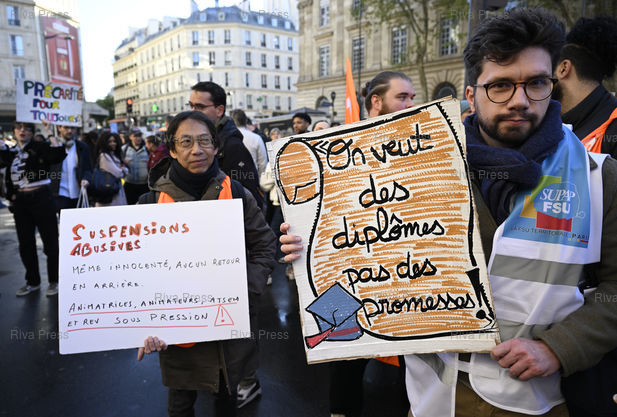 PRÉCARITÉ
POUR
TOU·TE·S
SUSPENSIONS
ABUSIVES
MÊME INNOCENTÉ, AUCUN RETOUR
EN ARRIÈRE.
ANIMATRICES, ANIMATEURS, ATSEM
ET REV SOUS PRESSION
!
"On veut
des
diplômes
pas des
promesses!
SUPAP
FSU
LA FSU TERRITORIALE PARIS
Riva Press